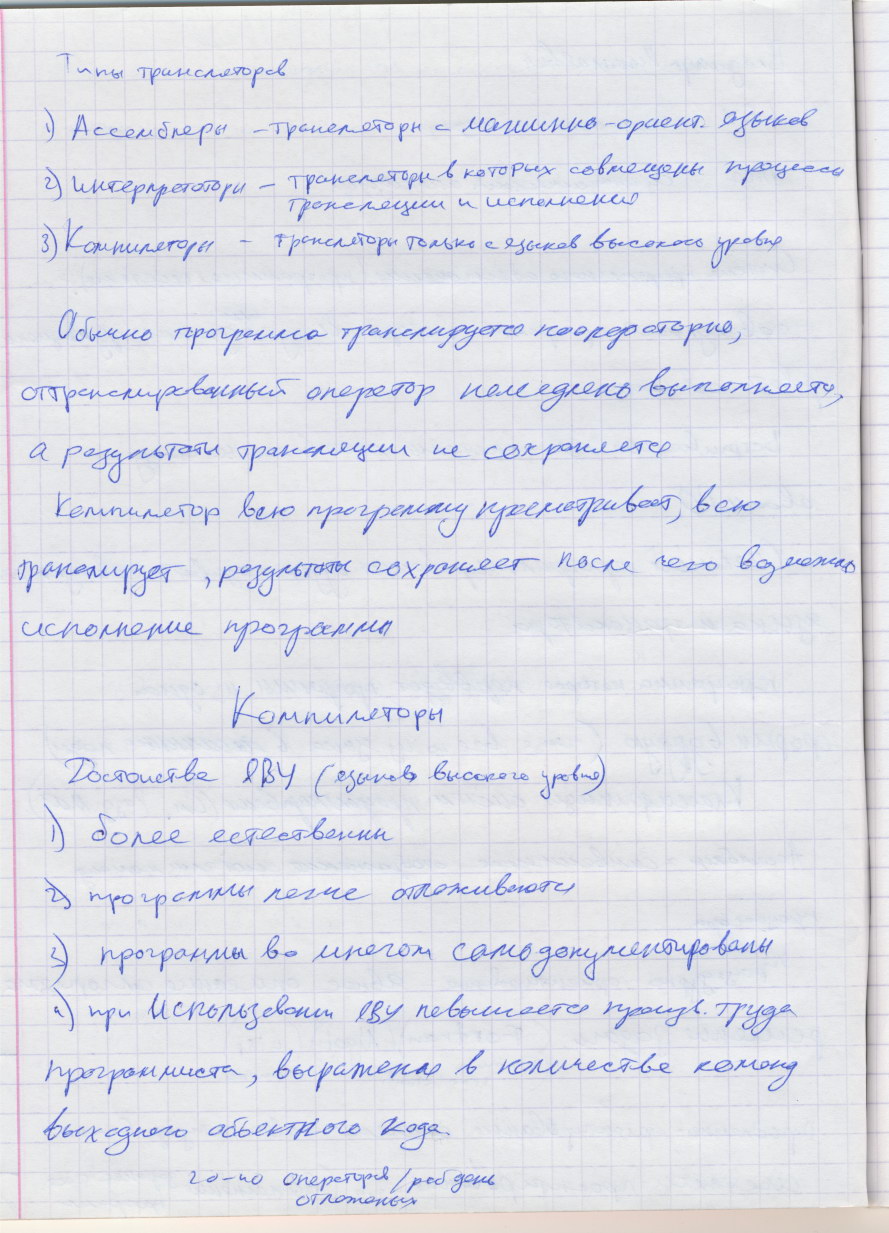 Типы трансляторов
1) Ассемблеры – трансляторы с машинно-ориент. языков
2) Интерпретаторы – трансляторы в которых совмещены процессы
трансляции и исполнения
3) Компиляторы – трансляторы только с языков высокого уровня
Обычно программа транслируется пооператорно,
оттранслированный оператор немедлено выполняется,
а результаты трансляции не сохраняется
Компилятор всю программу просматривает, всю
транслирует, результаты сохраняет после чего возможно
исполнение программы
Компиляторы
Достоиства ЯВУ (языков высокого уровня)
1) более естественны
2) программы легче отлаживаются
3) программы во многом самодокументированы
4) при использовании ЯВУ повышается произв. труда
программиста, выраженная в количестве команд
выходного объектного кода.
операторов/раб день
отлаженых